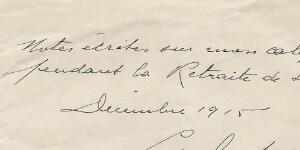 Notes écrites sur mon
pendant la Retraite de
Décembre 1915